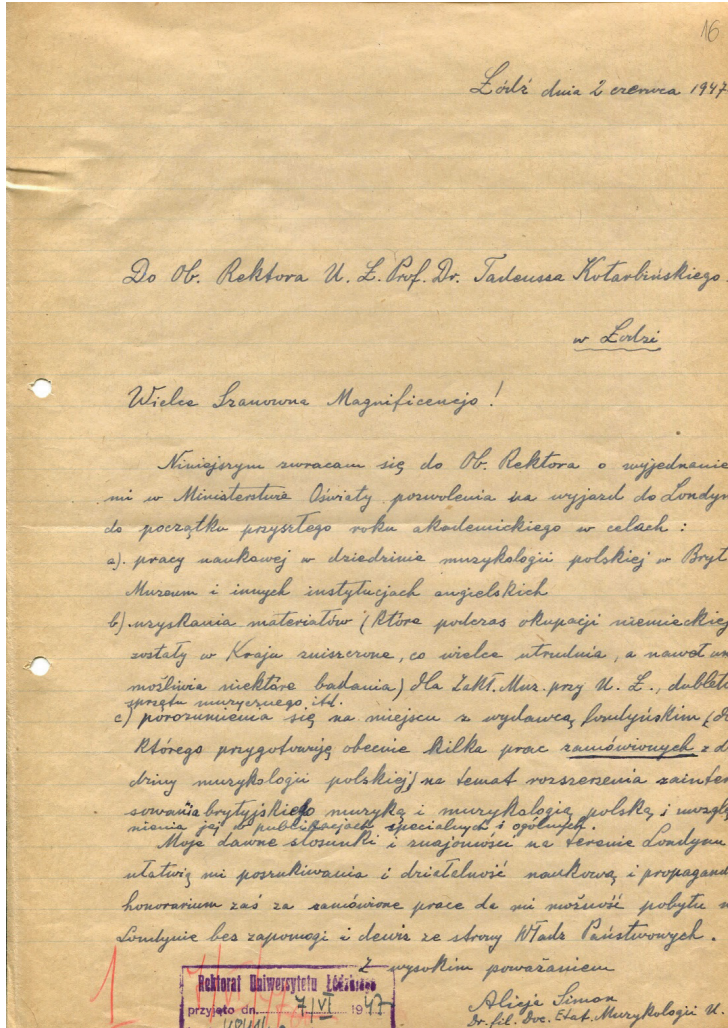 16
Łódź dnia 2 czerwca 1947
Do Ob. Rektora U. Ł. Prof. Dr. Tadeusza Kotarbińskiego.
w Łodzi
Wielce Szanowna Magnificencjo!
Niniejszym zwracam się do Ob. Rektora o wyjednanie
mi w Ministerstwie Oświaty pozwolenia na wyjazd do Londyn
do początku przyszłego roku akademickiego w celach:
a). pracy naukowej w dziedzinie muzykologii polskiej w Bryt
Muzeum i innych instytucjach angielskich
b) uzyskania materiałów (które podczas okupacji niemieckiej
zostały w Kraju zniszczone, co wielce utrudnia, a nawet un
możliwia niektóre badania) dla Zakł. Muz. przy U. Ł., dublet
sprzętu muzycznego, itd.
c) porozumienia się na miejscu z wydawcą londyńskim (d
którego przygotowuję obecnie kilka prac zamówionych z d
dziny muzykologii polskiej) na temat rozszerzenia zainter
sowania brytyjskiego muzyką i muzykologią polską i uwzglę
nienia jej w publikacjach specjalnych i ogólnych.
Moje dawne stosunki i znajomości na terenie Londynu
ułatwią mi poszukiwania i działalność naukową i propagand
honorarium zaś za zamówione prace da mi możność pobytu w
Londynie bez zapomogi i dewiz ze strony Władz Państwowych.
Z wysokim poważaniem
Alicja Simon
Dr. fil. Doc. Etat. Muzykologii U.
Rektorat Uniwersytetu Łódzkiego
przyjęto dn. 7/VI 1947